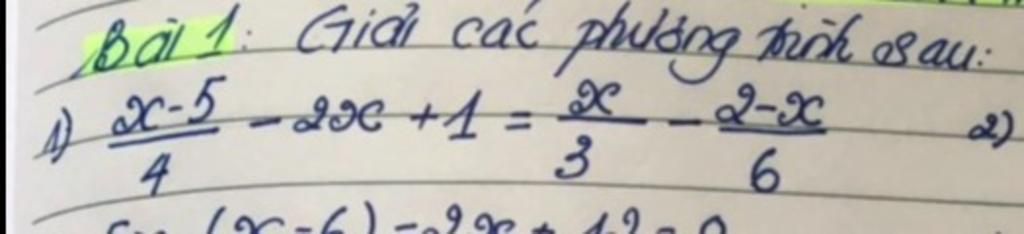 Bài 1: Giải các phương trình sau:
1) x-5/4 - 2x + 1 = x/3 - 2-x/6 2)